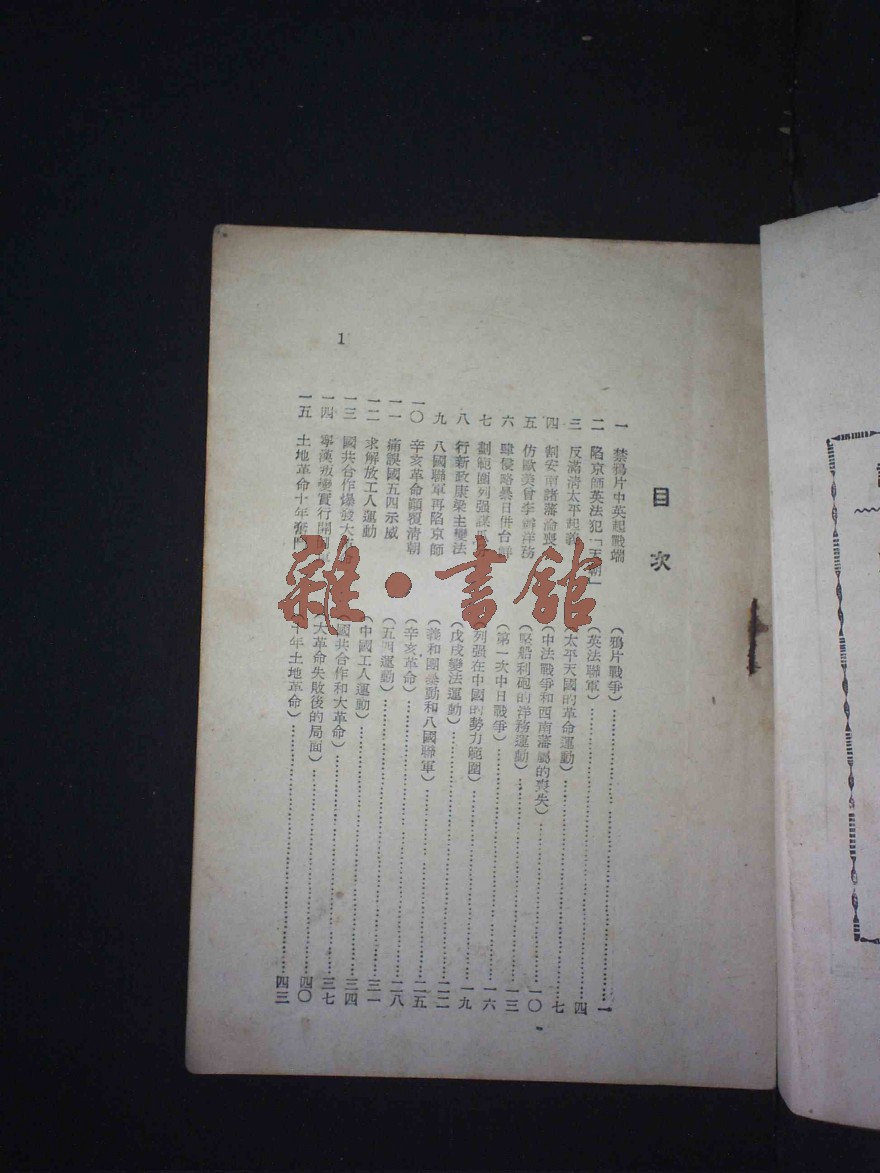 目次
一 禁鴉片中英起戰端（鴉片戰爭）……一
二 陷京師英法犯「天朝」（英法聯軍）……四
三 反滿清太平起義（太平天國的革命運動）……七
四 割安南諸藩淪喪（中法戰爭和西南藩屬的喪失）……一〇
五 仿歐美曾李辦洋務（堅船利砲的洋務運動）……一三
六 肆侵略暴日併台（第一次中日戰爭）……一六
七 劃範圍列强謀（列强在中國的勢力範圍）……一九
八 行新政康梁主變法（戊戌變法運動）……二二
九 八國聯軍再陷京師（義和團暴動和八國聯軍）……二五
一〇 辛亥革命顚覆清朝（辛亥革命）……二八
一一 痛誤國五四示威（五四運動）……三一
一二 求解放工人運動（中國工人運動）……三四
一三 國共合作爆發大（國共合作和大革命）……三七
一四 寧漢叛變實行開（大革命失敗後的局面）……四〇
一五 土地革命十年奮鬥（十年土地革命）……四三
1
雜·書館